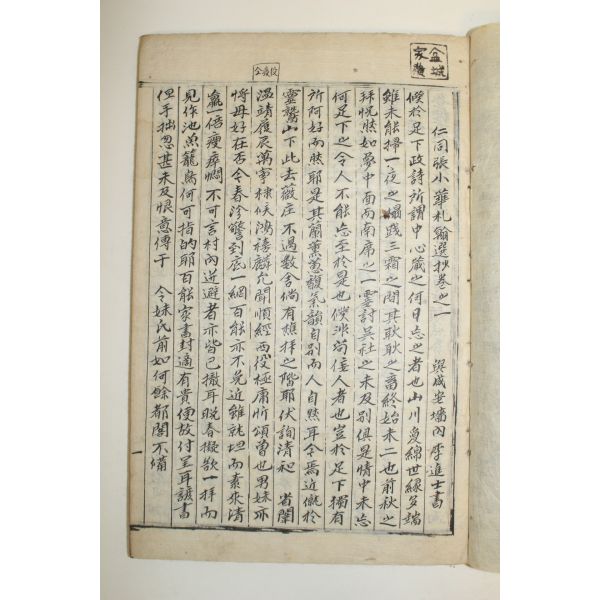 仁同張小華札翰選抄卷之一
與咸安墻內李進士書
僕於足下政詩所謂中心藏之何日忘之者也山川夐綿世緣多端
雖未能掃一夜之榻踐三霜之閏其耿耿之舊終始未二也前秋之
拜怳然如夢中面而南席之一霎討吳社之未及別俱是情中未忘
何足下之令人不能忘至於是也僕非茍佳人者也豈於足下獨有
所阿好而然耶是其蘭薰蕙馥氣韻自別而人自然耳今焉近僦於
靈鷲山下此去薇庄不過數舍倘有樵拜之階耶伏詢清和 省闈
溫靖履辰萬寧棣候鴻禧麟兄開順經西役極庸忻頌曾也男妹亦
將母好在否今春沴警到底一網百能亦不免近雖就坦而素來清
羸一倍瘦瘁憫不可言村內迸避者亦皆已撤耳晩春擬欲一拜而
見作池魚籠鳥何可指的耶百能家書封適有貴便故付呈耳諺書
但手拙忽甚未及恨意傳于 令妹氏前如何餘都閣不備
金城家藏